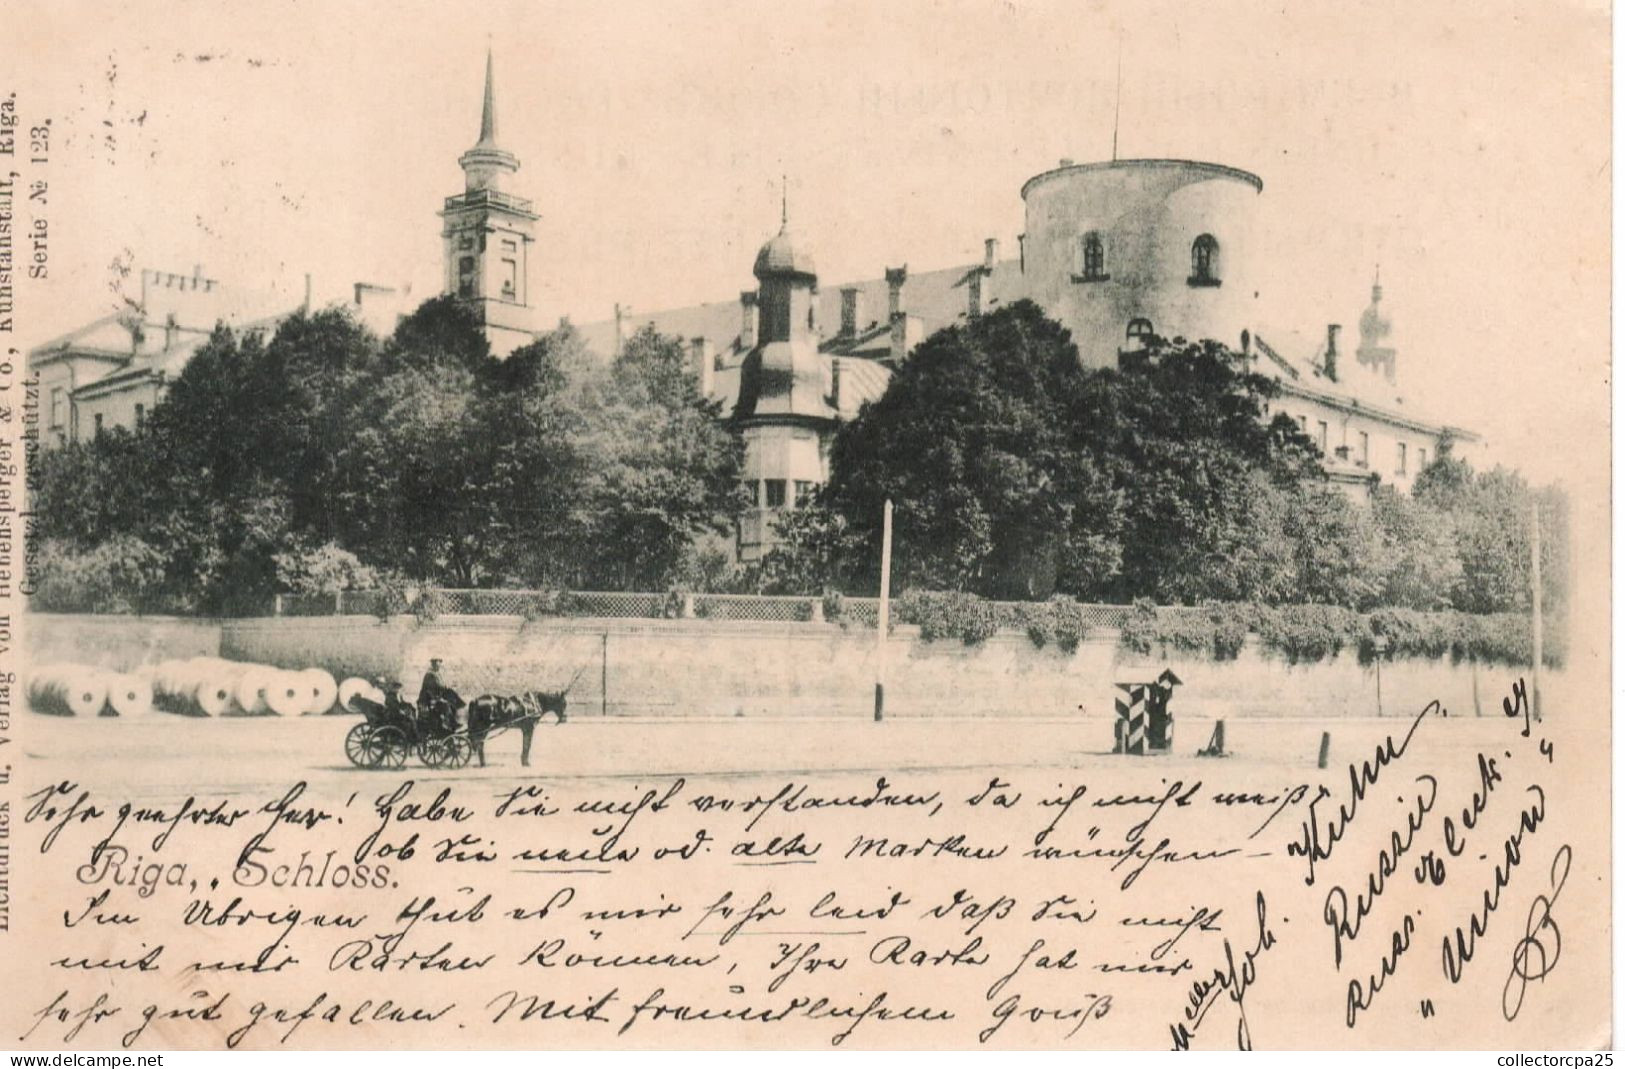 Lichtdruck u. Verlag von Hebensperger & Co., Kunstanstalt, Riga.
Gesetzl. geschützt.
Serie № 123.
Sehr geehrter Herr! Habe Sie nicht verstanden, da ich nicht weiß
ob Sie neue od. alte Marken wünschen –
Riga, Schloss.
Im Übrigen thut es mir sehr leid daß Sie nicht
mit mir Karten können, Ihre Karte hat mir
sehr gut gefallen. Mit freundlichem Gruß
Joh. Kuhn
Russie
Russ. Electr. G
"Union"
collectorcpa25